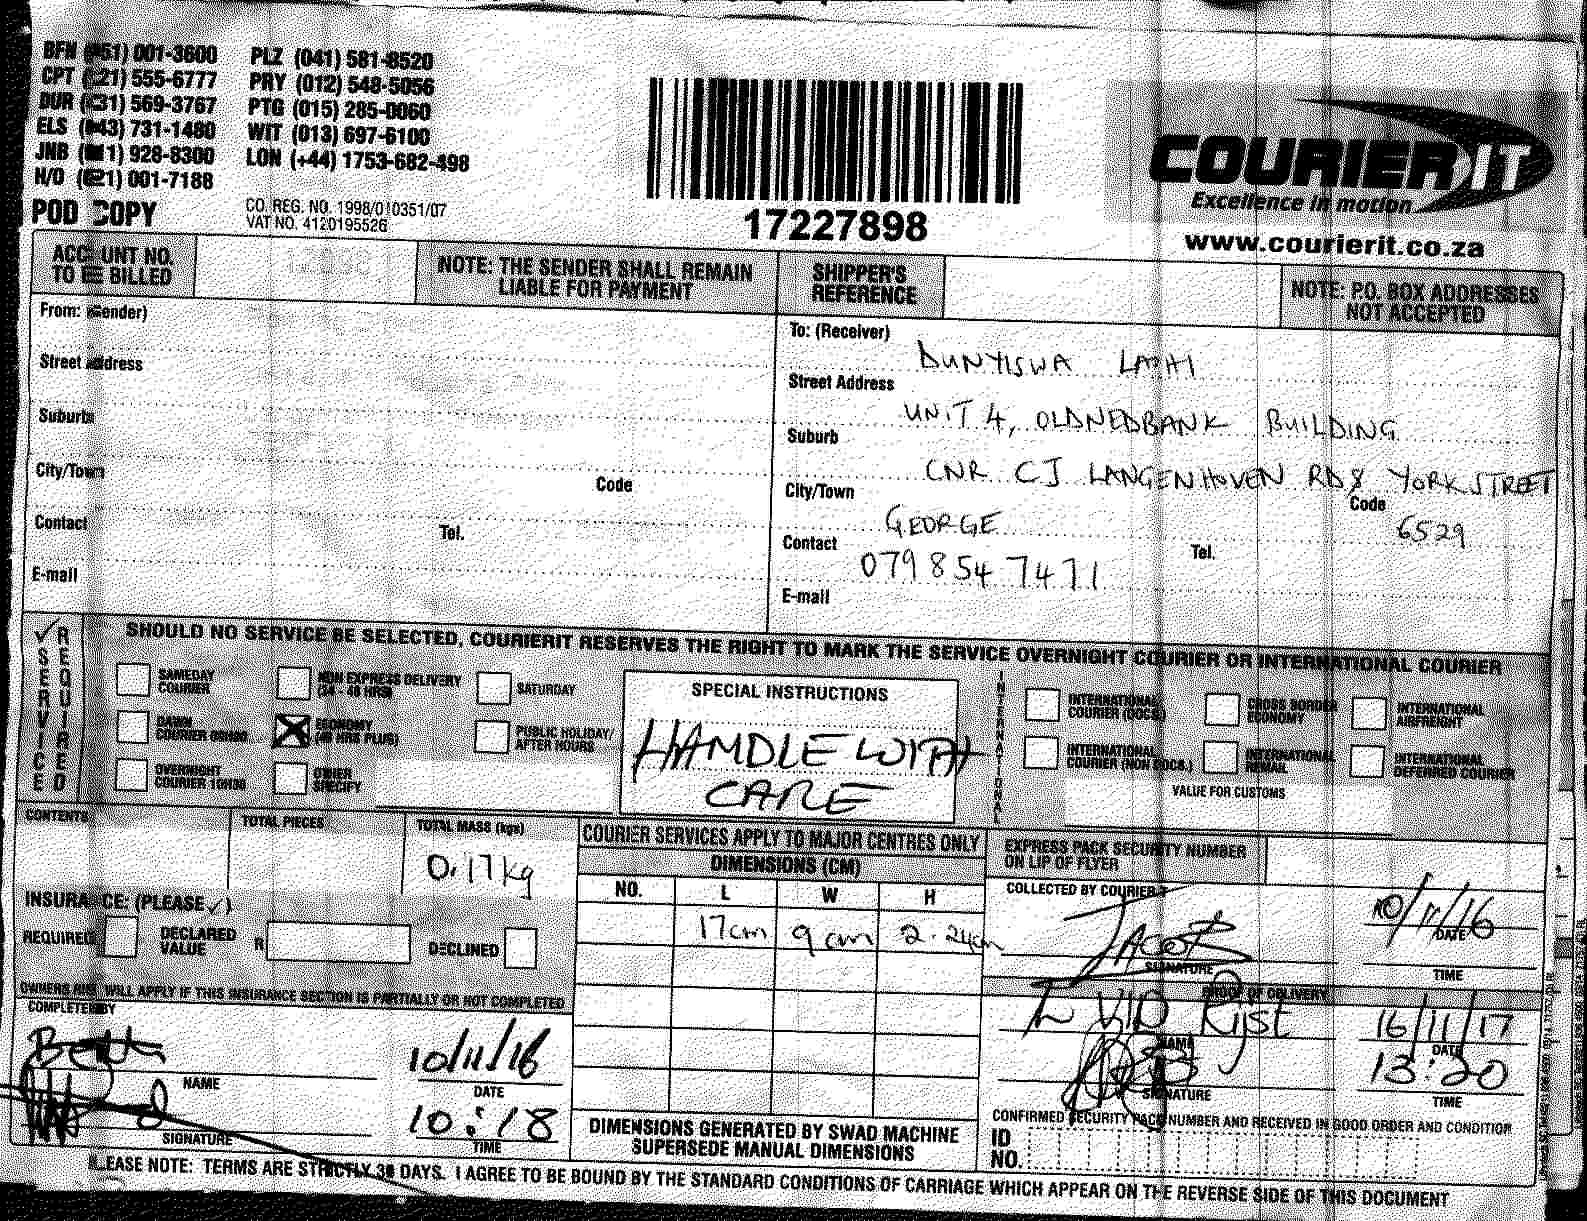 BFN (051) 001-3600 PLZ (041) 581-8520
CPT (021) 555-6777 PRY (012) 548-5056
DUR (031) 569-3767 PTG (015) 285-0060
ELS (043) 731-1480 WIT (013) 697-6100
JNB (011) 928-8300 LON (+44) 1753-682-498
H/O (021) 001-7188
POD COPY
CO. REG. NO. 1998/010351/07
VAT NO. 4120195526
17227898
COURIER IT
Excellence in motion
www.courierit.co.za
ACCOUNT NO. TO BE BILLED
NOTE: THE SENDER SHALL REMAIN LIABLE FOR PAYMENT
SHIPPER'S REFERENCE
NOTE: P.O. BOX ADDRESSES NOT ACCEPTED
From: (Sender)
Street Address
Suburb
City/Town Code
Contact Tel.
E-mail
To: (Receiver) DUNYISWA
Street Address UNIT 4, OLDNEDBANK BUILDING
Suburb CNR CJ LANGENHOVEN RD & YORK STREET
City/Town GEORGE Code 6529
Contact 079 854 7471 Tel.
E-mail
✓ SERVICE REQUIRED
SHOULD NO SERVICE BE SELECTED, COURIERIT RESERVES THE RIGHT TO MARK THE SERVICE OVERNIGHT COURIER OR INTERNATIONAL COURIER
SAMEDAY COURIER
NON EXPRESS DELIVERY (24 - 48 HRS)
SATURDAY
DAWN COURIER
ECONOMY (48 HRS PLUS)
PUBLIC HOLIDAY/ AFTER HOURS
OVERNIGHT COURIER 10H30
OTHER SPECIFY
SPECIAL INSTRUCTIONS
HANDLE WITH
CARE
INTERNATIONAL
INTERNATIONAL COURIER (DOCS.)
CROSS BORDER ECONOMY
INTERNATIONAL AIRFREIGHT
INTERNATIONAL COURIER (NON DOCS.)
INTERNATIONAL REMAIL
INTERNATIONAL DEFERRED COURIER
VALUE FOR CUSTOMS
CONTENTS
TOTAL PIECES
TOTAL MASS (kgs)
0.17kg
INSURANCE: (PLEASE ✓)
REQUIRED
DECLARED VALUE R
DECLINED
OWNERS RISK WILL APPLY IF THIS INSURANCE SECTION IS PARTIALLY OR NOT COMPLETED
COURIER SERVICES APPLY TO MAJOR CENTRES ONLY
DIMENSIONS (CM)
NO. L W H
17cm 9cm 2.24cm
DIMENSIONS GENERATED BY SWAD MACHINE SUPERSEDE MANUAL DIMENSIONS
EXPRESS PACK SECURITY NUMBER ON LIP OF FLYER
COLLECTED BY COURIERIT
10/11/16
SIGNATURE DATE
TIME
PROOF OF DELIVERY
16/11/17
NAME DATE
13:20
SIGNATURE TIME
CONFIRMED SECURITY PACK NUMBER AND RECEIVED IN GOOD ORDER AND CONDITION
ID NO.
COMPLETED BY
10/11/16
NAME DATE
10:18
SIGNATURE TIME
PLEASE NOTE: TERMS ARE STRICTLY 30 DAYS. I AGREE TO BE BOUND BY THE STANDARD CONDITIONS OF CARRIAGE WHICH APPEAR ON THE REVERSE SIDE OF THIS DOCUMENT